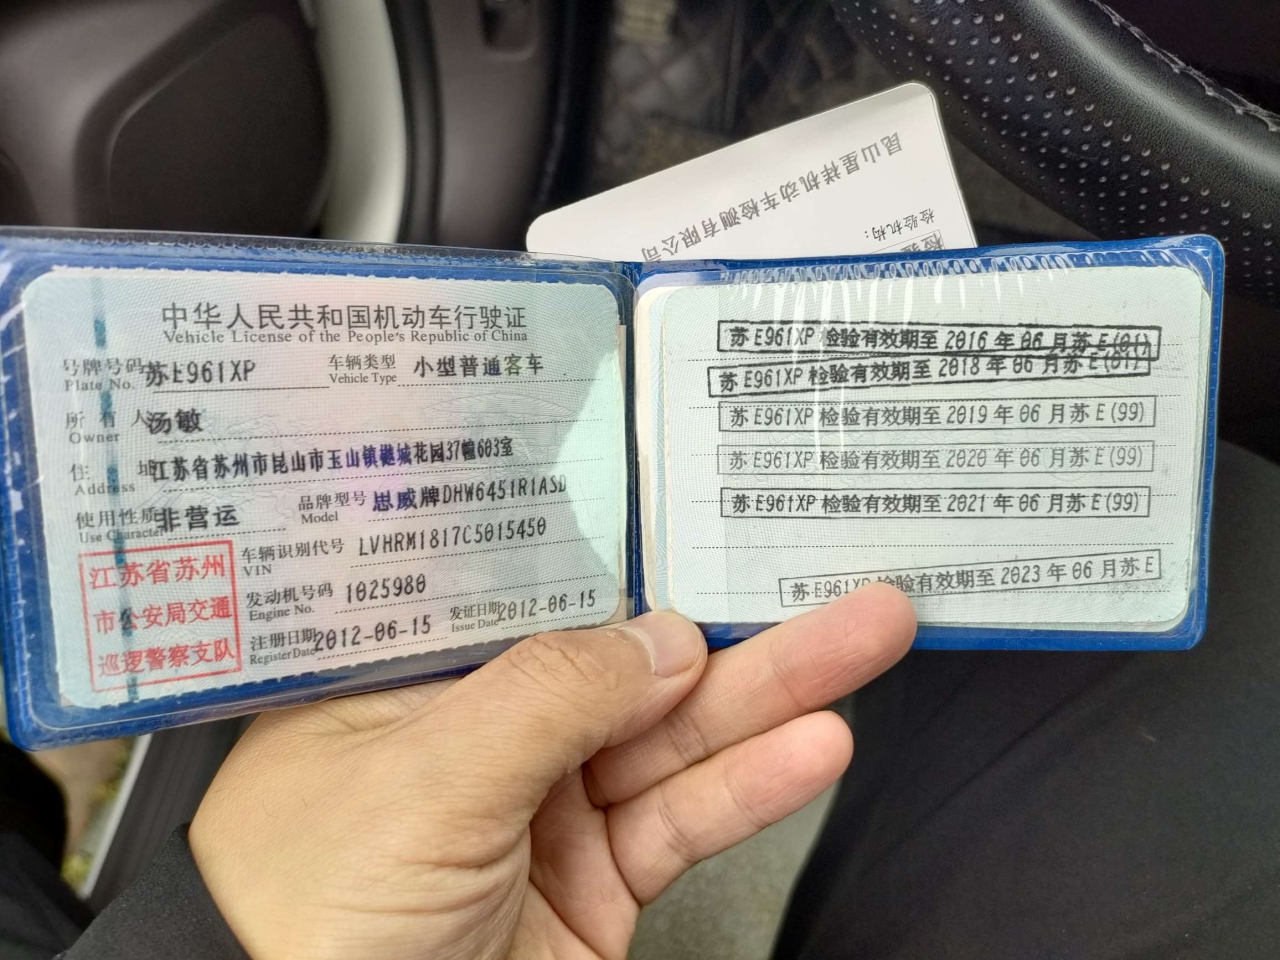 中华人民共和国机动车行驶证
Vehicle License of the People's Republic of China
号牌号码 苏E961XP 车辆类型 小型普通客车
Plate No. Vehicle Type
所有人 汤敏
Owner
住址 江苏省苏州市昆山市玉山镇樾城花园37幢603室
Address
使用性质 非营运 品牌型号 思威牌DHW6451R1ASD
Use Character Model
车辆识别代号 LVHRM1817C5015450
VIN
发动机号码 1025980
Engine No.
注册日期 2012-06-15 发证日期 2012-06-15
Register Date Issue Date
江苏省苏州
市公安局交通
巡逻警察支队
昆山星祥机动车检测有限公司
检验机构：
苏E961XP 检验有效期至 2016 年 06 月苏 E(01)
苏E961XP 检验有效期至 2018 年 06 月苏 E(01)
苏E961XP 检验有效期至 2019 年 06 月苏 E(99)
苏E961XP 检验有效期至 2020 年 06 月苏 E(99)
苏E961XP 检验有效期至 2021 年 06 月苏 E(99)
苏E961XP 检验有效期至 2023 年 06 月苏 E